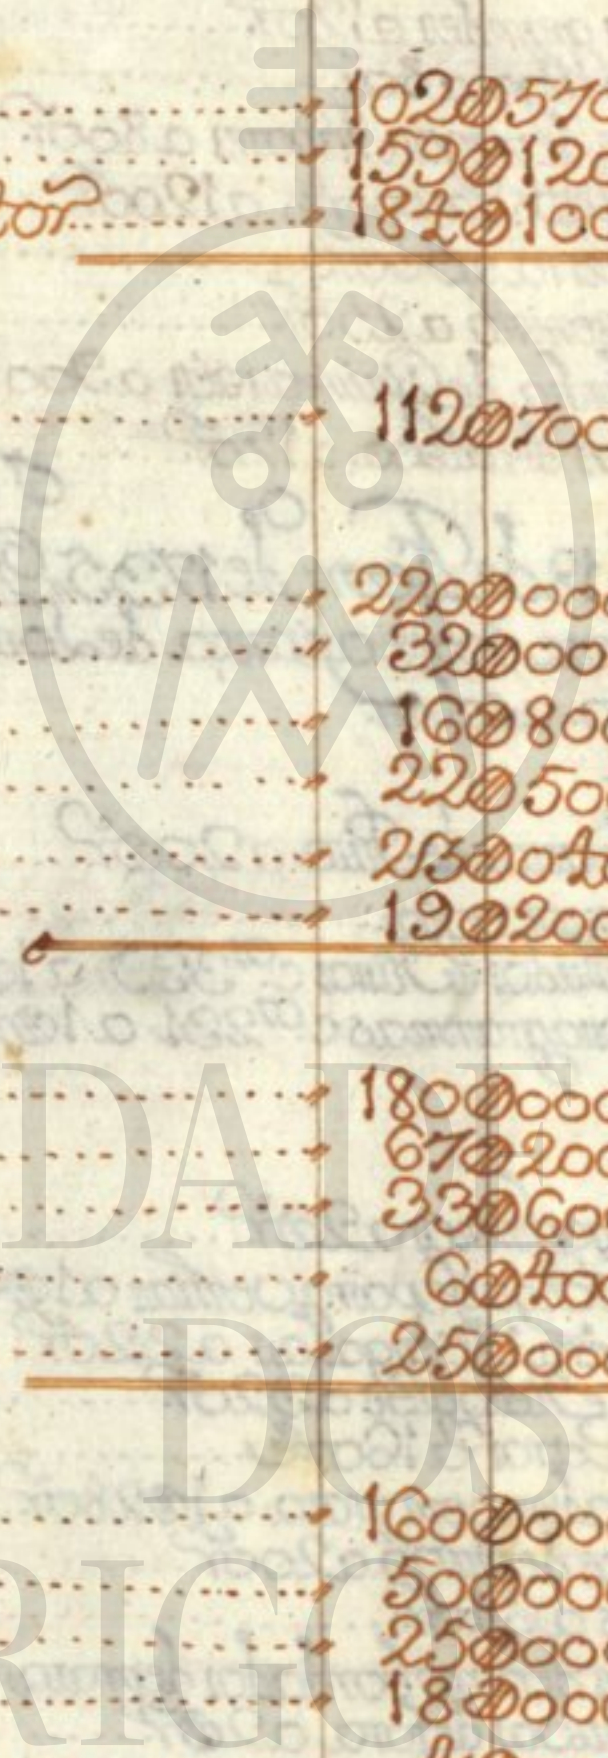 102$570
159$120
184$100
112$700
220$000
32$000
16$800
22$500
23$040
19$200
180$000
67$200
33$600
6$400
25$000
160$000
50$000
25$000
18$000
DADE
DOS
RIGOS